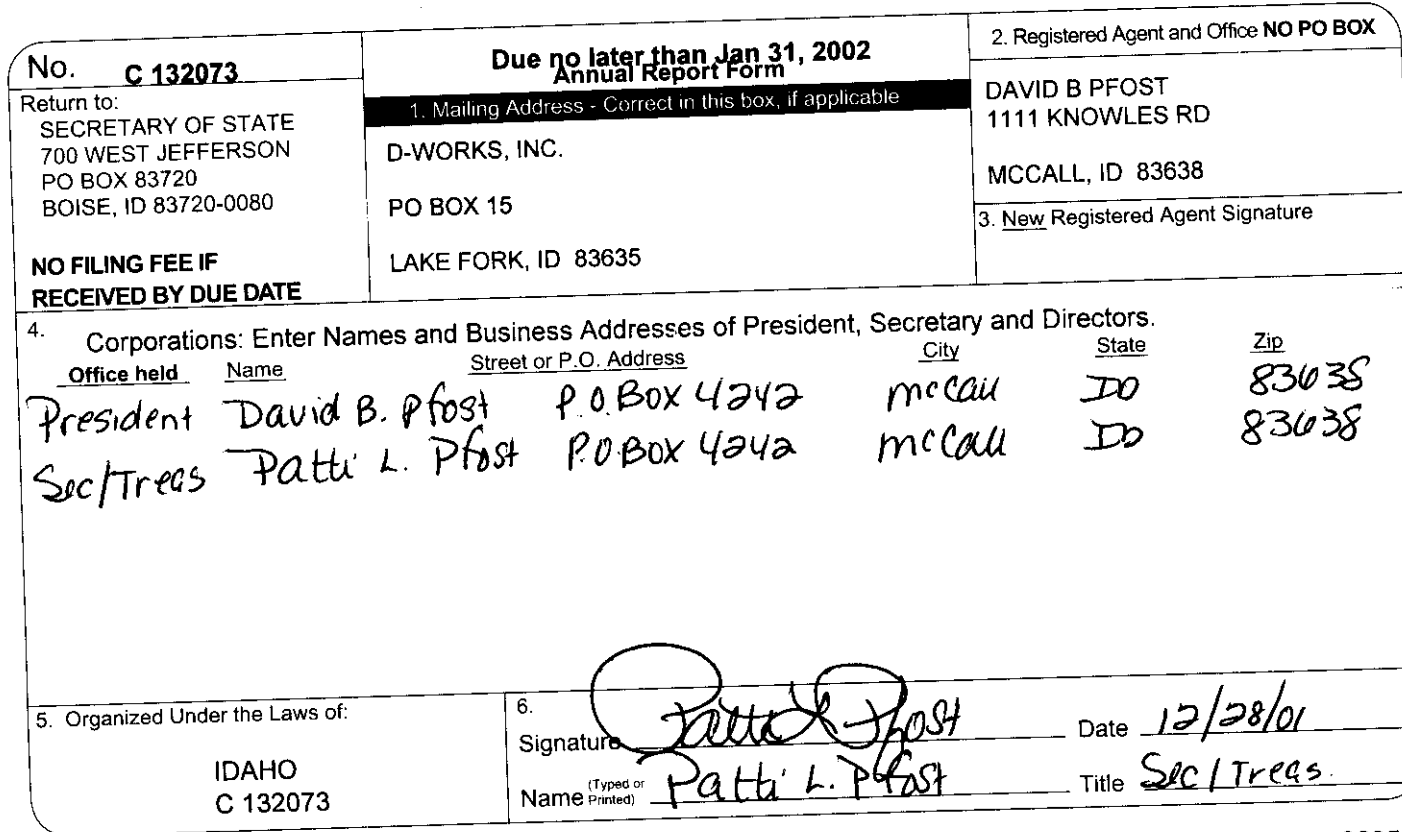 No. C 132073
Return to:
SECRETARY OF STATE
700 WEST JEFFERSON
PO BOX 83720
BOISE, ID 83720-0080
NO FILING FEE IF
RECEIVED BY DUE DATE
Due no later than Jan 31, 2002
Annual Report Form
1. Mailing Address - Correct in this box, if applicable
D-WORKS, INC.
PO BOX 15
LAKE FORK, ID 83635
2. Registered Agent and Office NO PO BOX
DAVID B PFOST
1111 KNOWLES RD
MCCALL, ID 83638
3. New Registered Agent Signature
4. Corporations: Enter Names and Business Addresses of President, Secretary and Directors.
Office held Name Street or P.O. Address City State Zip
President David B. Pfost P.O. Box 4242 mccall ID 83638
Sec/Treas Patti L. Pfost P.O. Box 4242 mccall ID 83638
5. Organized Under the Laws of:
IDAHO
C 132073
6.
Signature Patti L Pfost Date 12/28/01
Name (Typed or Printed) Patti L. Pfost Title Sec/Treas.